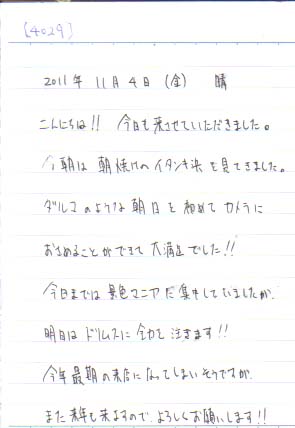 [4029]
2011年 11月4日 (金) 晴
こんにちは!! 今日も来させていただきました。
今朝は朝焼けのイタンキ浜を見てきました。
ダルマのような朝日を初めてカメラに
おさめることができて大満足でした!!
今日までは景色マニア集中していましたが、
明日はドリムスに全力を注ぎます!!
今年最期の来店になってしまいそうですが、
また来年も来ますので、よろしくお願いします!!